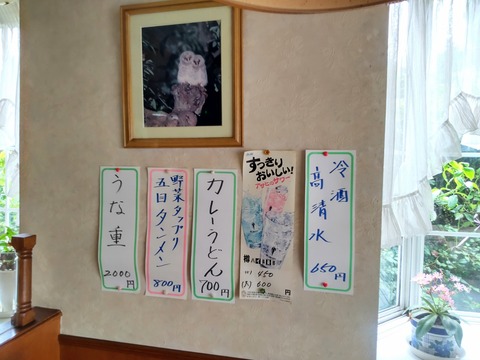 うな重
2000円
野菜タップリ
五目タンメン
800円
カレーうどん
700円
すっきり
おいしい!
アサヒのサワー
450
(大) 600
円
冷酒
高清水
650円